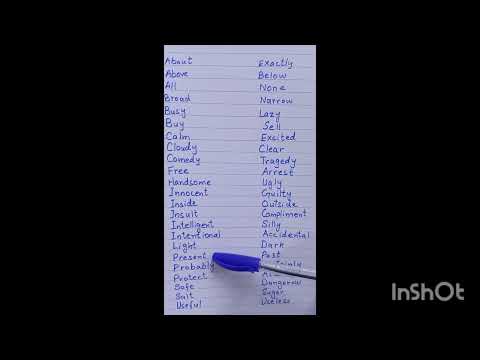 About Exactly
Above Below
All None
Broad Narrow
Busy Lazy
Buy Sell
Calm Exsited
Cloudy Clear
Comedy Tragedy
Free Arrest
Handsome Ugly
Innocent Guilty
Inside Outside
Insult Compliment
Intelligent Silly
Intentional Accidental
Light Dark
Present Past
Probably
Protect
Safe Dangerow
Salt Sugar
Useful Useless
InShOt